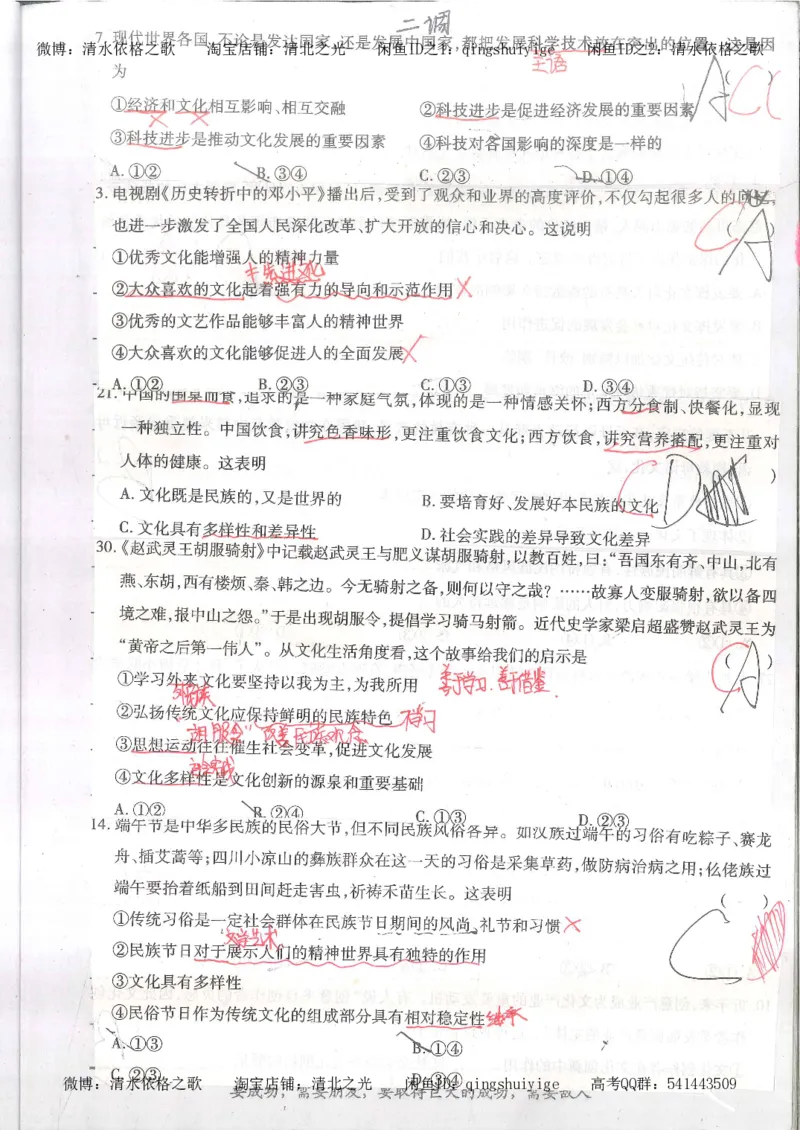 二调
7. 现代世界各国,不论是发达国家,还是发展中国家,都把发展科学技术放在突出的位置。这是因
微博：清水依格之歌 淘宝店铺：清北之光 闲鱼ID之1：qingshuiyige 闲鱼ID之2：清水依格之歌
为 ( )
主语
A C
①经济和文化相互影响、相互交融 ②科技进步是促进经济发展的重要因素
③科技进步是推动文化发展的重要因素 ④科技对各国影响的深度是一样的
A. ①② B. ③④ C. ②③ D. ①④
3. 电视剧《历史转折中的邓小平》播出后,受到了观众和业界的高度评价,不仅勾起很多人的回忆,
也进一步激发了全国人民深化改革、扩大开放的信心和决心。这说明 ( )
C A
①优秀文化能增强人的精神力量
先进文化
②大众喜欢的文化起着强有力的导向和示范作用
③优秀的文艺作品能够丰富人的精神世界
④大众喜欢的文化能够促进人的全面发展
A. ①② B. ②③ C. ①③ D. ③④
21. 中国的围桌而食,追求的是一种家庭气氛,体现的是一种情感关怀;西方分食制、快餐化,显现
一种独立性。中国饮食,讲究色香味形,更注重饮食文化;西方饮食,讲究营养搭配,更注重对
人体的健康。这表明 )
C D
A. 文化既是民族的,又是世界的 B. 要培育好、发展好本民族的文化
C. 文化具有多样性和差异性 D. 社会实践的差异导致文化差异
30. 《赵武灵王胡服骑射》中记载赵武灵王与肥义谋胡服骑射,以教百姓,曰:“吾国东有齐、中山,北有
燕、东胡,西有楼烦、秦、韩之边。今无骑射之备,则何以守之哉? ……故寡人变服骑射,欲以备四
境之难,报中山之怨。”于是出现胡服令,提倡学习骑马射箭。近代史学家梁启超盛赞赵武灵王为
“黄帝之后第一伟人”。从文化生活角度看,这个故事给我们的启示是 ( )
C A
①学习外来文化要坚持以我为主,为我所用 善于学习 善于借鉴.
②弘扬传统文化应保持鲜明的民族特色 不学习
“胡服令”
③思想运动往往催生社会变革,促进文化发展
社会实践
④文化多样性是文化创新的源泉和重要基础
A. ①② B. ②④ C. ①③ D. ②③
14. 端午节是中华多民族的民俗大节,但不同民族风俗各异。如汉族过端午的习俗有吃粽子、赛龙
舟、插艾蒿等;四川小凉山的彝族群众在这一天的习俗是采集草药,做防病治病之用;仫佬族过
端午要抬着纸船到田间赶走害虫,祈祷禾苗生长。这表明 ( )
C
①传统习俗是一定社会群体在民族节日期间的风尚、礼节和习惯
文学艺术
②民族节日对于展示人们的精神世界具有独特的作用
③文化具有多样性
④民俗节日作为传统文化的组成部分具有相对稳定性 继承
A. ①③ B. ①④
C. ②③ D. ③④
微博：清水依格之歌 淘宝店铺：清北之光 闲鱼ID：qingshuiyige 高考QQ群：541443509
要成功，需要朋友，要取得巨大的成功，需要敌人